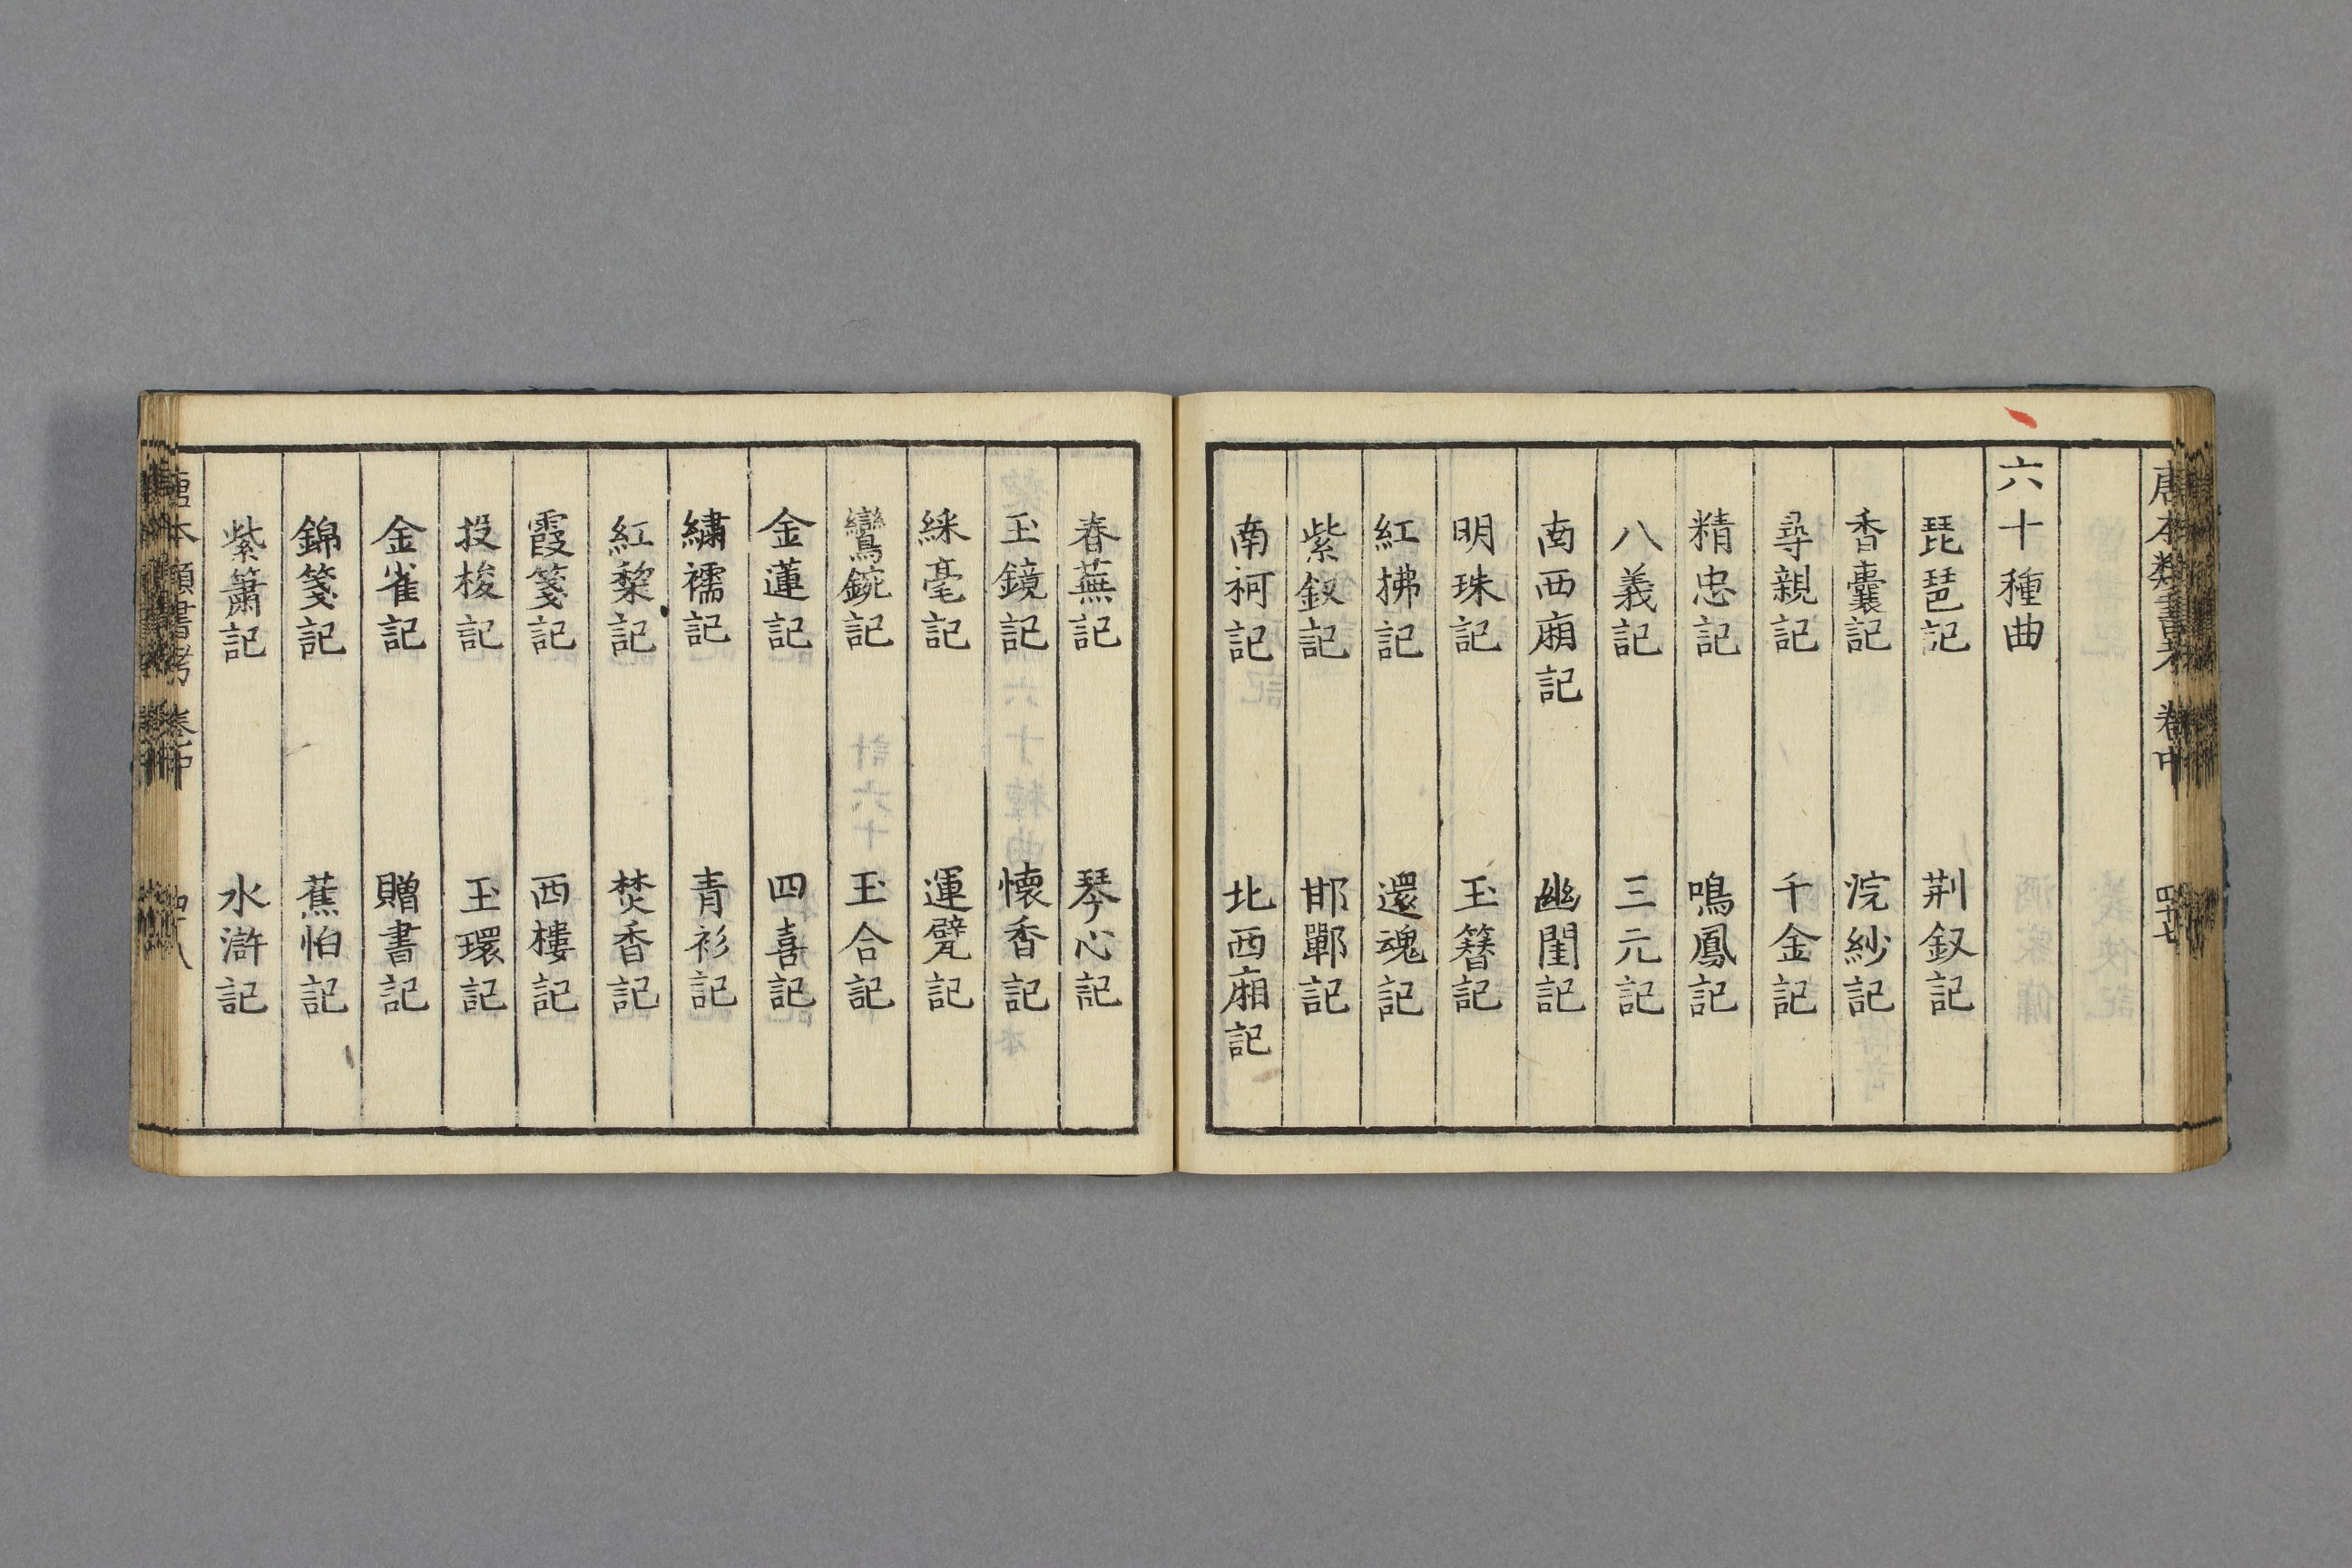 唐本類書考 卷中 四十七
六十種曲
琵琶記 荆釵記
香囊記 浣紗記
尋親記 千金記
精忠記 鳴鳳記
八義記 三元記
南西廂記 幽閨記
明珠記 玉簪記
紅拂記 還魂記
紫釵記 邯鄲記
南柯記 北西廂記
春蕪記 琴心記
玉鏡記 懷香記
綵毫記 運甓記
鸞鎞記 玉合記
金蓮記 四喜記
繡襦記 青衫記
紅棃記 焚香記
霞箋記 西樓記
投梭記 玉環記
金雀記 贈書記
錦箋記 蕉怕記
紫簫記 水滸記
唐本類書考 卷中 四十八